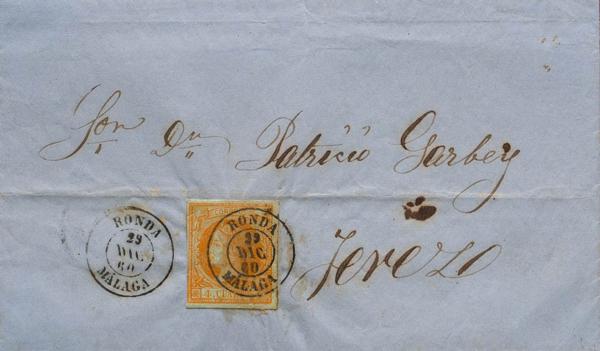 Sor. Dn. Patricio Garvey
Jerez
RONDA
29
DIC
60
MÁLAGA
RONDA
29
DIC
60
MÁLAGA